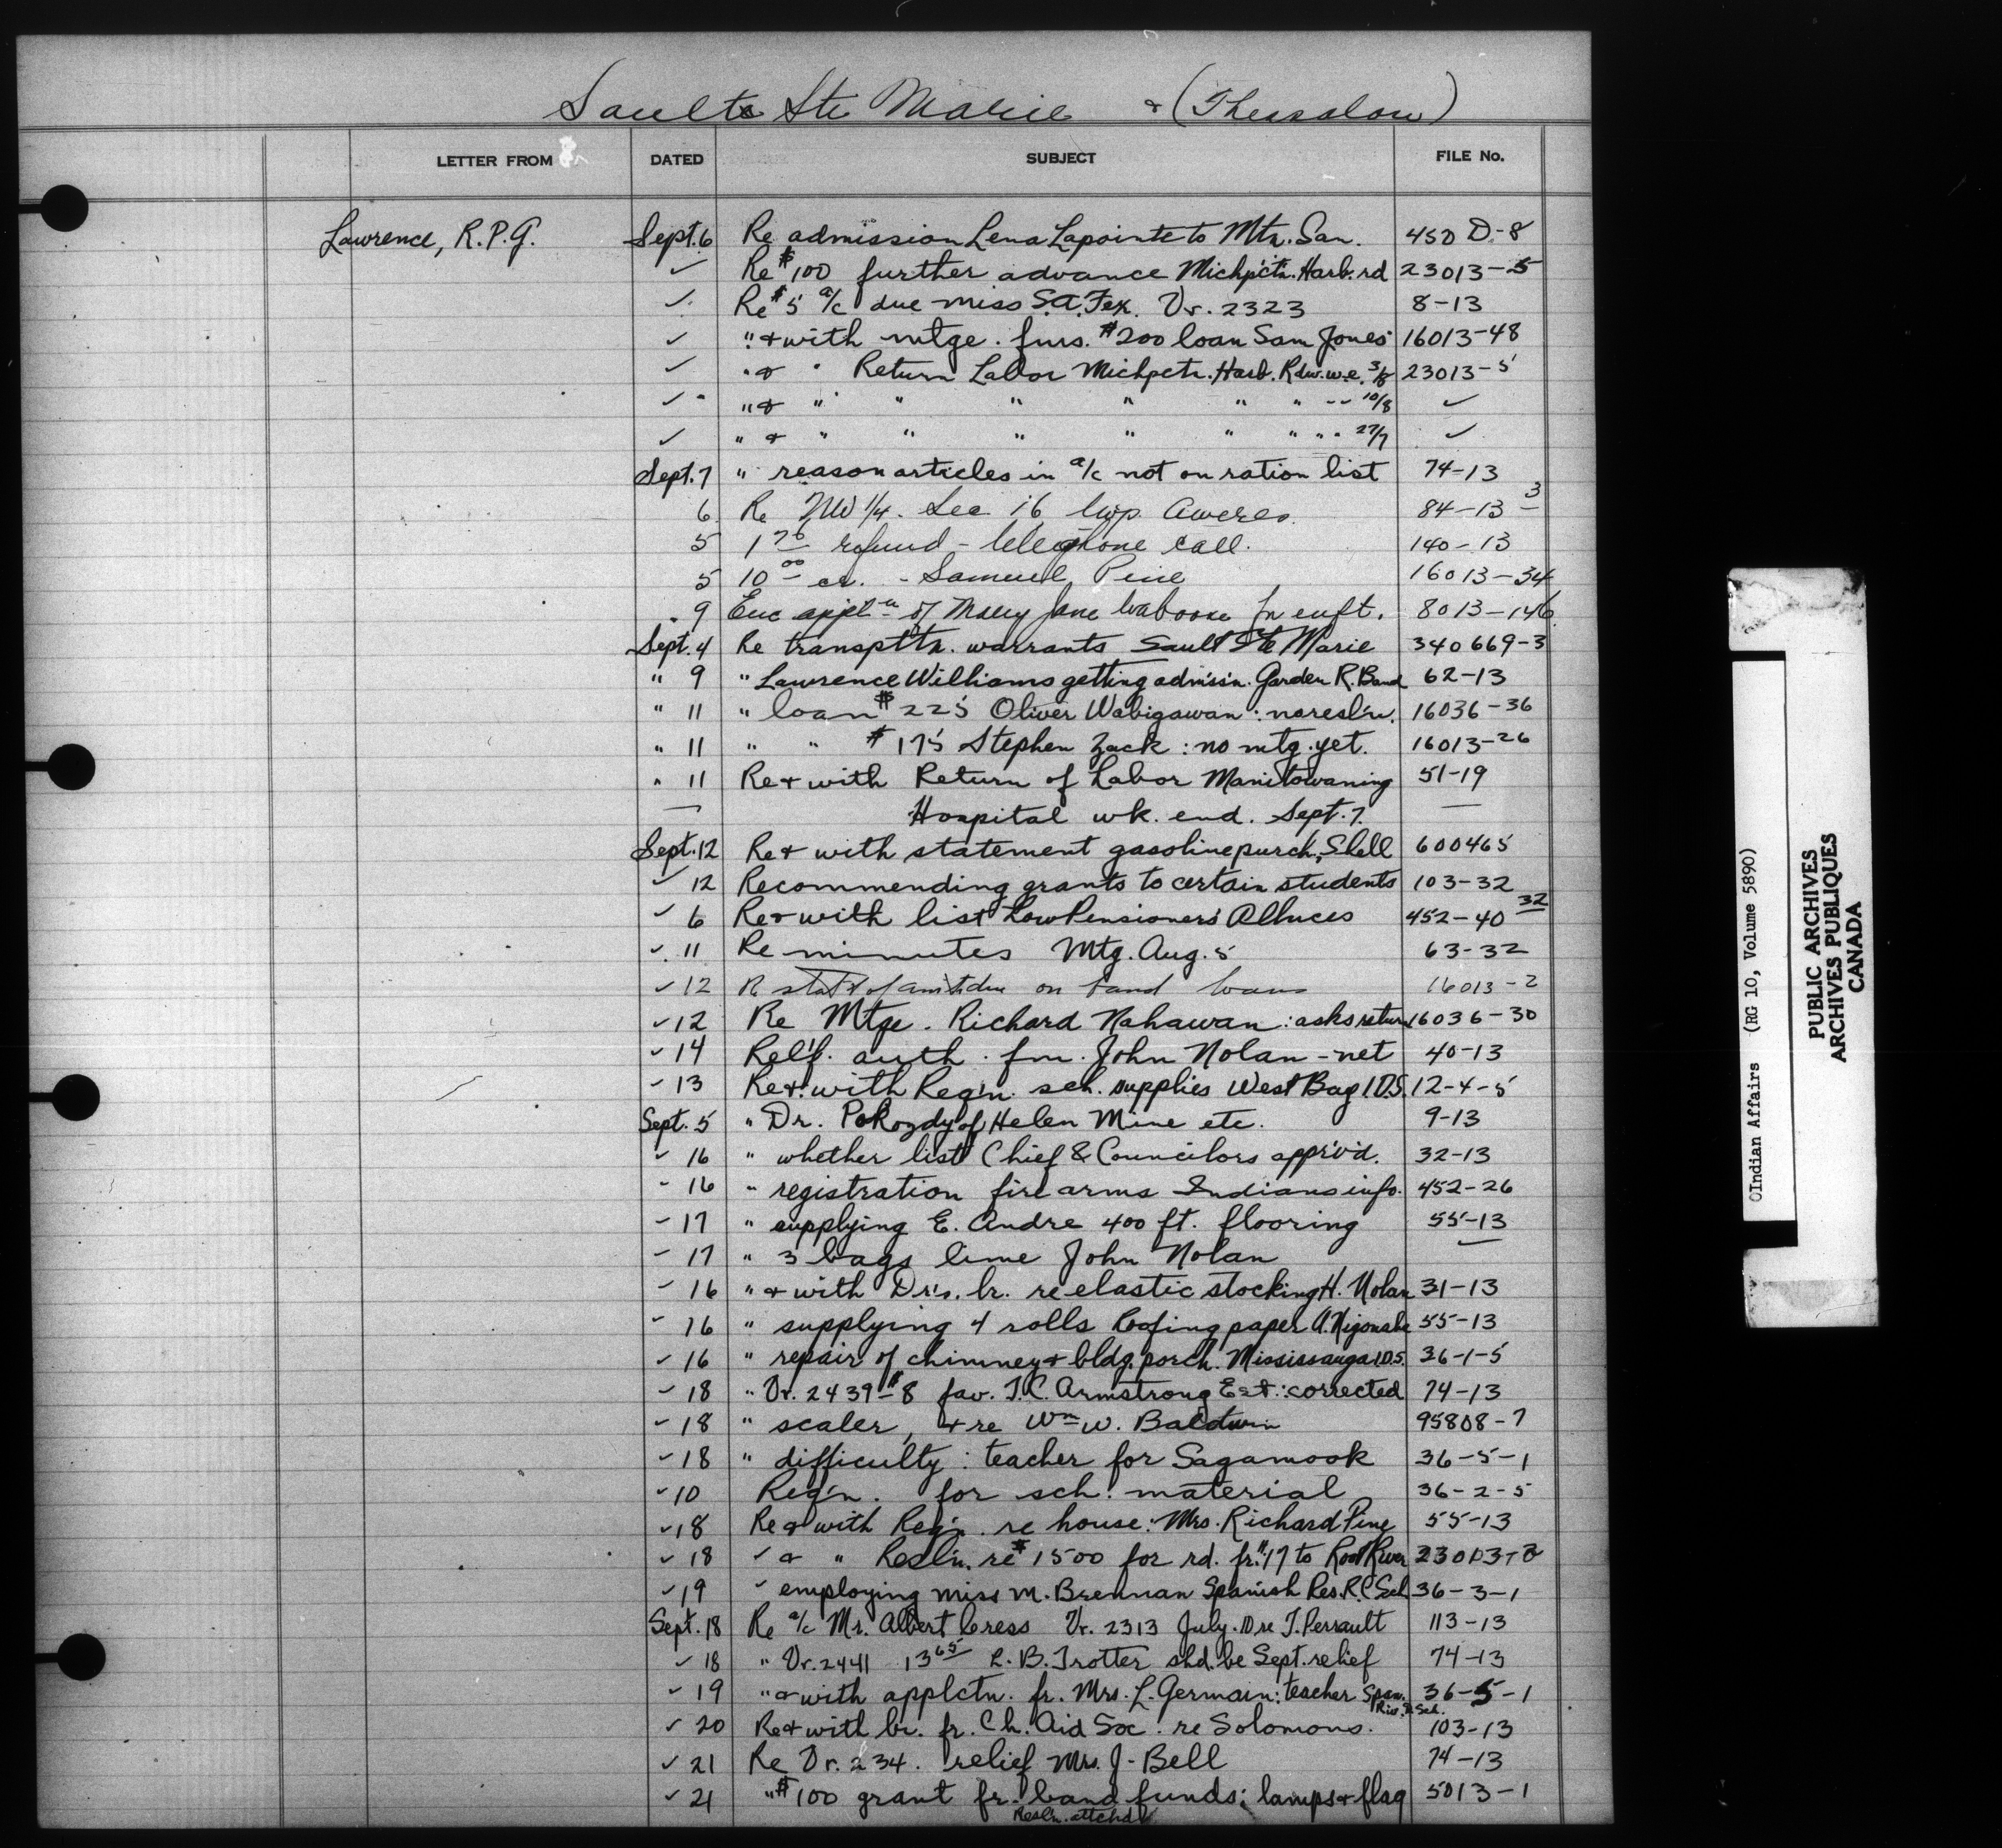 Sault Ste Marie & (Thessalon)
LETTER FROM DATED SUBJECT FILE No.
Lawrence, R.P.G. Sept. 6 Re admission Lena Lapointe to Mtn. San. 450 D-8
✓ Re $100 further advance Michpctn. Harb. rd 23013-5
✓ Re $5 a/c due miss S.A. Fex. Vr. 2323 8-13
✓ " & with mtge. furs. $200 loan Sam Jones 16013-48
✓ " & " Return Labor Michpctn. Harb. Rdw. w.e. 3/8 23013-5
✓ " " & " " " " " " " " 10/8 ✓
✓ " & " " " " " " " " 27/7 ✓
Sept. 7 " reason articles in a/c not on ration list 74-13
6 Re NW 1/4. Sec 16 twp. Aweres. 84-13-3
5 1 76 refund - telephone call. 140-13
5 10 00 cr. - Samuel Pine 16013-34
" 9 Enc appl'n of Mary Jane Waboose for enft. 8013-146
Sept. 4 Re transpttn. warrants Sault Ste Marie 340669-3
" 9 " Lawrence Williams getting admiss'n. Garden R. Band 62-13
" 11 " loan $225 Oliver Wabigawan : no resl'n. 16036-36
" 11 " " $175 Stephen Zack : no mtg. yet. 16013-26
" 11 Re & with Return of Labor Manitowaning 51-19
— Hospital wk. end. Sept. 7. —
Sept. 12 Re & with statement gasoline purch, Shell 600465
✓ 12 Recommending grants to certain students 103-32
✓ 6 Re & with list Low Pensioners' Alluces 452-40 32
✓ 11 Re minutes Mtg. Aug. 5 63-32
✓ 12 Re stat't of amt due on band loans 16013-2
✓ 12 Re Mtge. Richard Nahawan : asks return 16036-30
✓ 14 Relf. auth. fm. John Nolan - net 40-13
✓ 13 Re & with Reg'n. sch. supplies West Bay I.D.S. 12-4-5
Sept. 5 " Dr. Pokozdy of Helen Mine etc. 9-13
✓ 16 " whether list Chief & Councilors appr'v'd. 32-13
✓ 16 " registration fire arms Indians info. 452-26
✓ 17 " supplying E. Andre 400 ft. flooring 55-13
✓ 17 " 3 bags lime John Nolan ✓
✓ 16 " & with Dr's. lr. re elastic stocking H. Nolan 31-13
✓ 16 " supplying 4 rolls Roofing paper 55-13
✓ 16 " repair of chimney & bldg. porch. Mississauga I.D.S. 36-1-5
✓ 18 " Vr. 2439-$8 fav. T.C. Armstrong Est : corrected 74-13
✓ 18 " scaler, & re Wm W. Baldwin 95808-7
✓ 18 " difficulty : teacher for Sagamook 36-5-1
✓ 10 Reg'n. for sch. material 36-2-5
✓ 18 Re & with Reg'n. re house: Mrs. Richard Pine 55-13
✓ 18 ✓ & " Resl'n. re $1500 for rd. fr. #17 to Root River 23013-2
✓ 19 " employing miss M. Brennan Spanish Res. R.C. Sch. 36-3-1
Sept. 18 Re a/c Mr. Albert Cress Vr. 2313 July. 10 re T. Perrault 113-13
✓ 18 " Vr. 2441 13 65 L. B. Trotter shd. be Sept. relief 74-13
✓ 19 " & with applctn. fr. Mrs. L. Germain: teacher Span. 36-5-1
Riv. Sch.
✓ 20 Re & with lr. fr. Ch. Aid Soc. re Solomons. 103-13
✓ 21 Re Vr. 234. relief Mrs. J. Bell 74-13
✓ 21 " $100 grant fr. band funds; lamps & flag 5013-1
Resl'n. attchd
©Indian Affairs (RG 10, Volume 5890)
PUBLIC ARCHIVES
ARCHIVES PUBLIQUES
CANADA